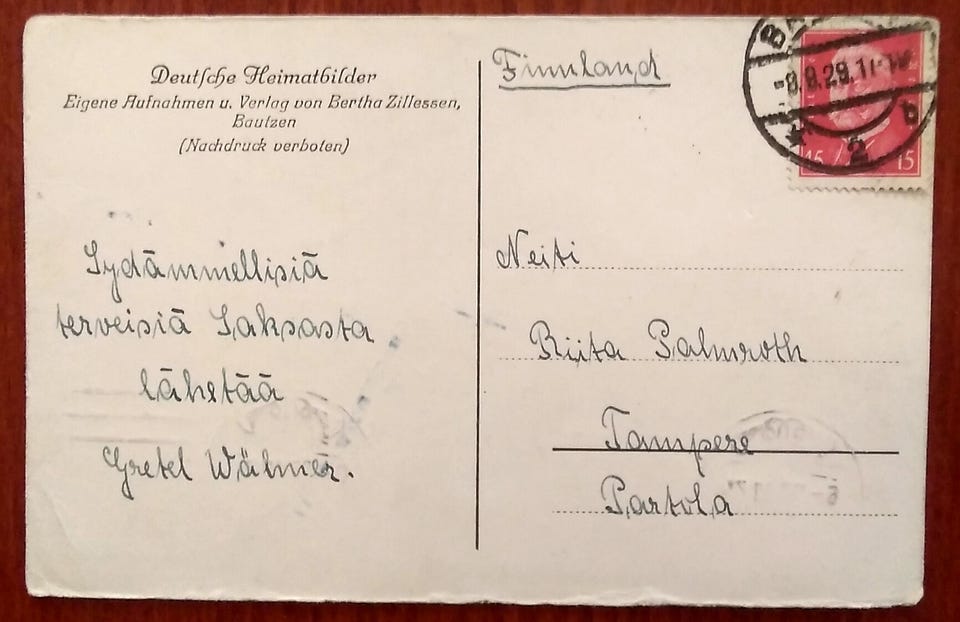 Deutsche Heimatbilder
Eigene Aufnahmen u. Verlag von Bertha Zillessen,
Bautzen
(Nachdruck verboten)
Sydämmellisiä
terveisiä Saksasta
lähetää
Gretel Wälmer.
Finnland
-8.8.29.11-
* 2 b
15 15
Neiti
Riita Palmroth
Tampere
Partola